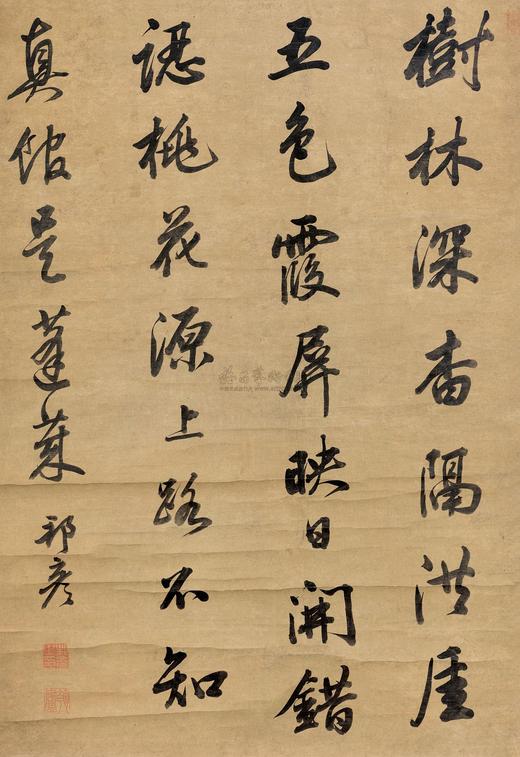 樹林深杳隔洪厓
五色霞屏映日開錯
認桃花源上路不知
真館是蓬萊 祁彥